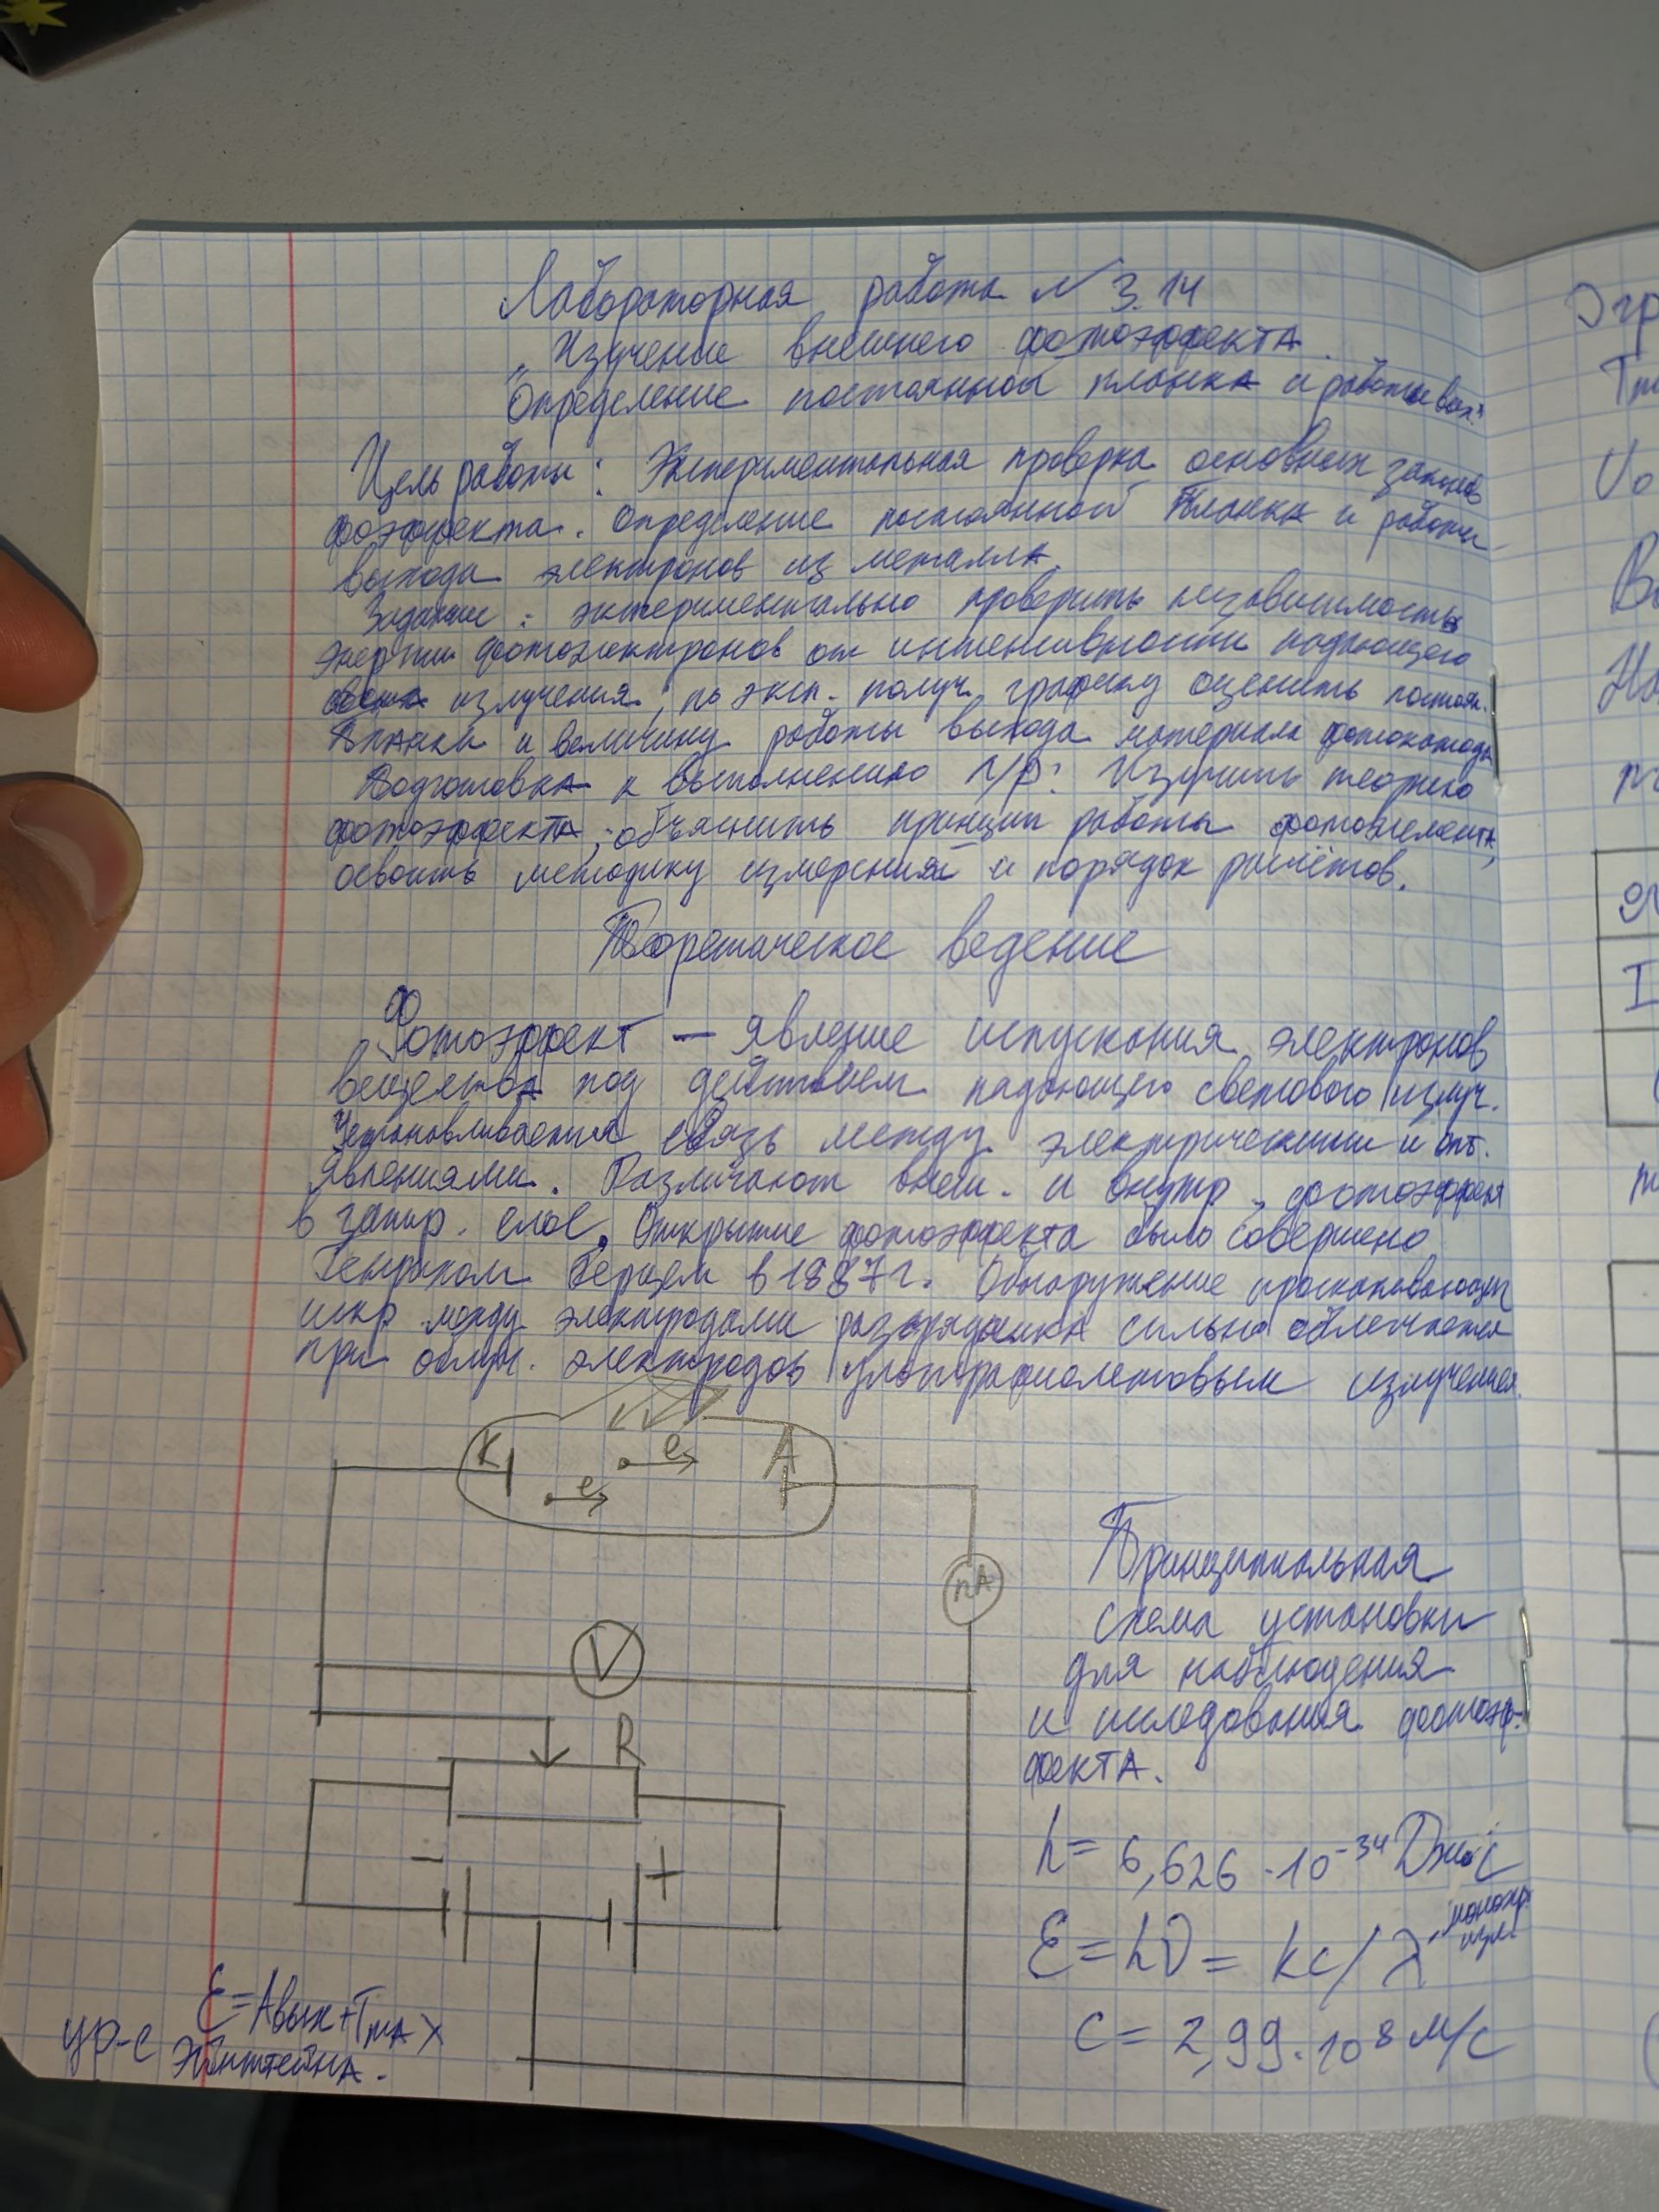 Лабораторная работа № 3.14
„Изучение внешнего фотоэффекта.
Определение постоянной планка и работы вых."
Цель работы: Экспериментальная проверка основных законов
фоэффекта. Определение постоянной Планка и работы
выхода электронов из металла.
Задание: экспериментально проверить независимость
энергии фотоэлектронов от интенсивности падающего
излучения; по эксп. получ. графику оценить постоян.
Планка и величину работы выхода материала фотокатода
Подготовка к выполнению л/р: Изучить теорию
фотоэффекта; объяснить принцип работы фотоэлемента,
освоить методику измерения и порядок расчётов.
Теоретическое ведение
Фотоэффект — явление испускания электронов
вещества под действием падающего светового излуч.
Устанавливается связь между электрическими и опт.
явлениями. Различают внеш. и внутр., фотоэффект
в запир. слое. Открытие фотоэффекта было совершено
Генрихом Герцем в 1887г. Обнаружение проскакивающих
искр между электродами разрядника сильно облегчается
при облуч. электродов ультрафиолетовым излучением
K
e
e
A
nA
V
R
-
+
Принципиальная
схема установки
для наблюдения
и исследования фотоэф-
фекта.
h = 6,626 · 10⁻³⁴ Дж·с
монохр.
изл.
ℰ = hν = hc/λ
c = 2,99·10⁸ м/с
ℰ=Aвых+Tmax
ур-е Эйнштейна.
Vo
I